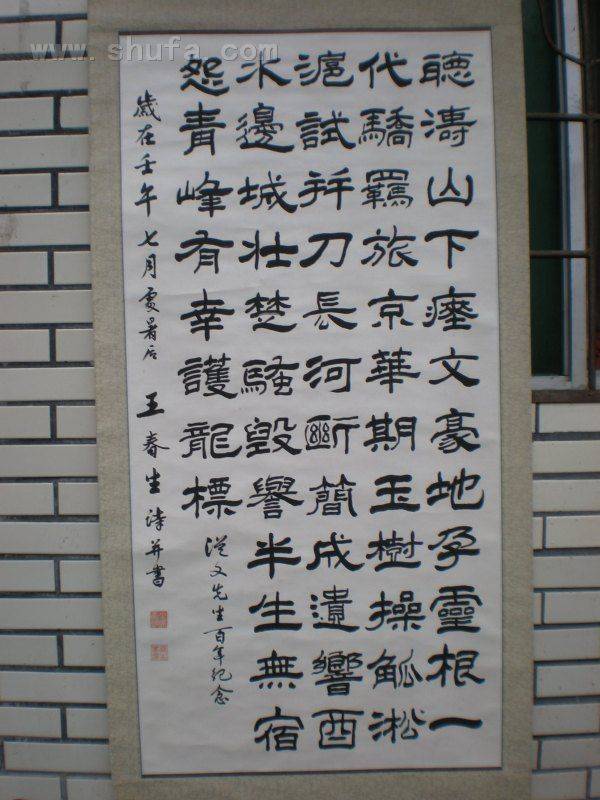 聽濤山下瘞文豪地孕靈根一
代驕羈旅京華期玉樹操觚淞
滬試并刀長河斷簡成遺響酉
水邊城壯楚騷毀譽半生無宿
怨青峰有幸護龍標
從文先生百年紀念
歲在壬午七月處暑后王春生詩并書
www.shufa.com